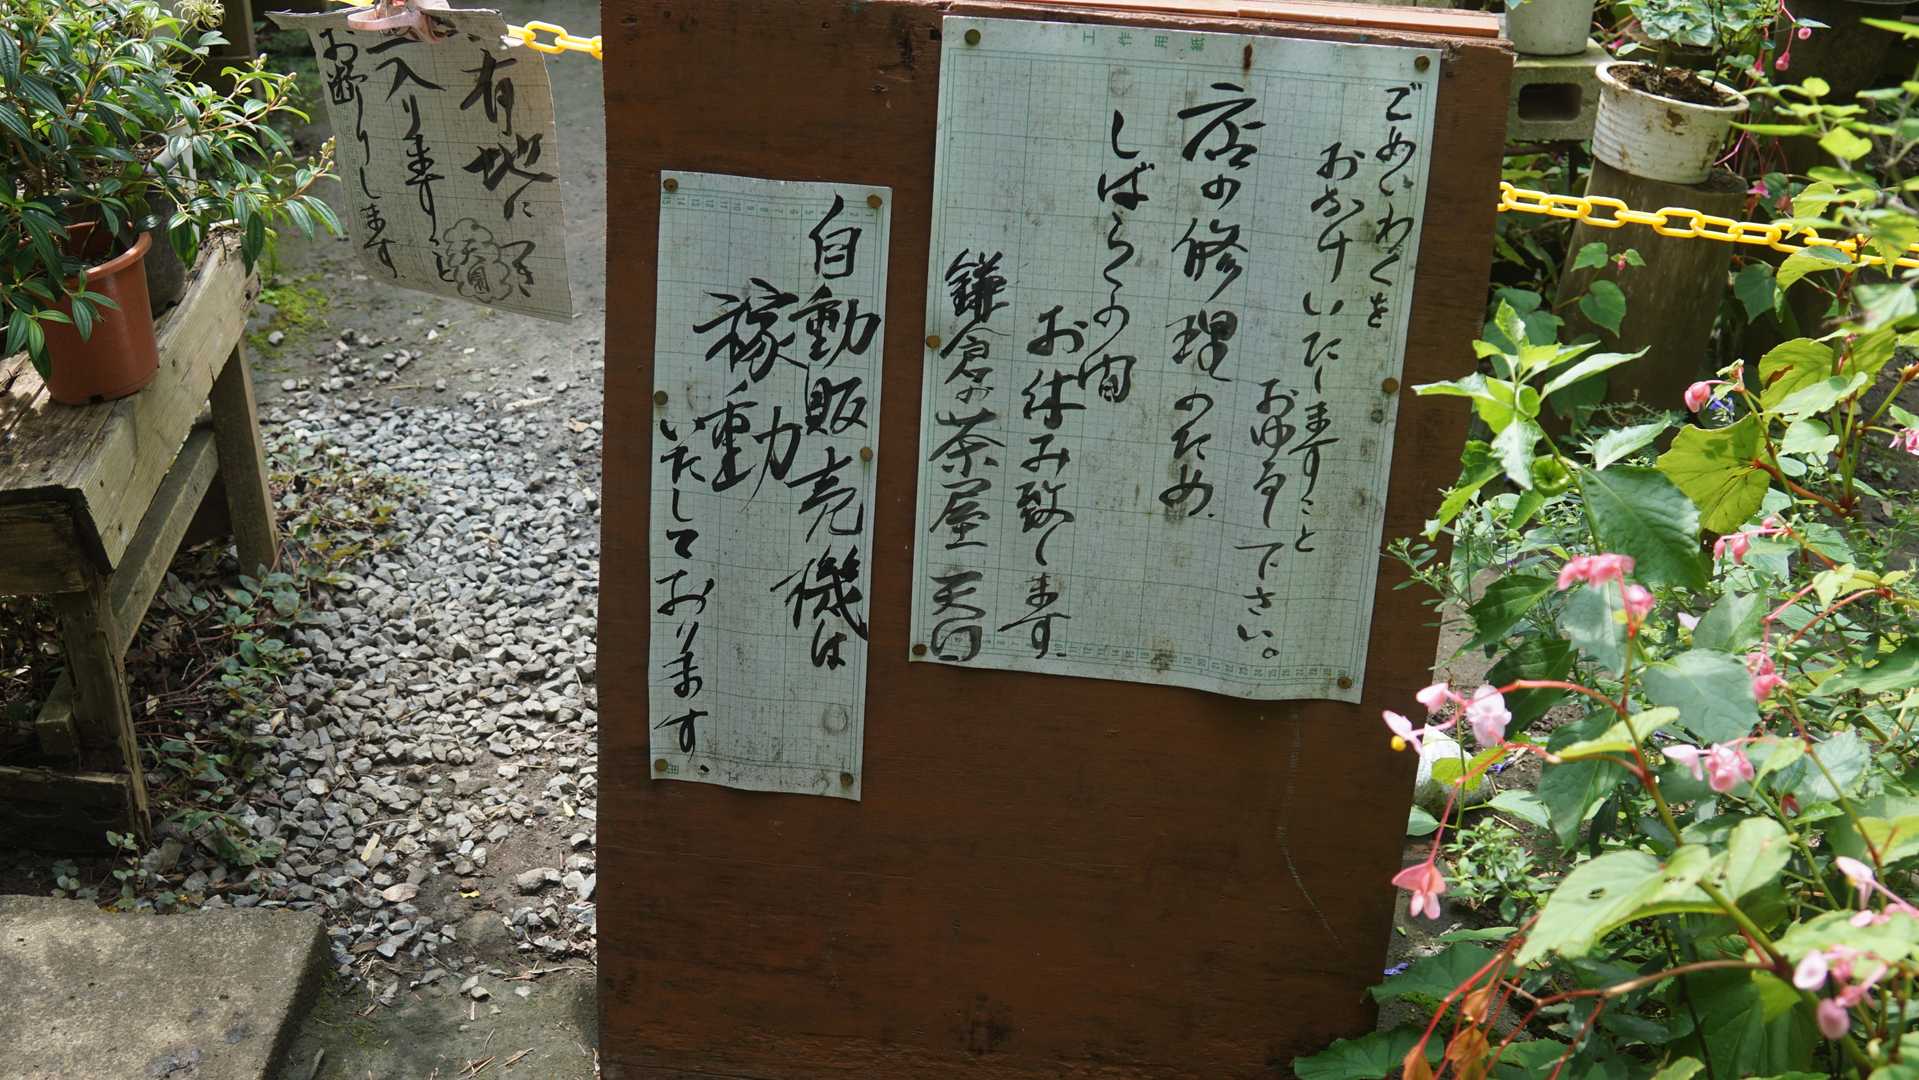 ごめいわくを
おかけいたしますこと
おゆるし下さい。
店の修理のため
しばらくの間
お休み致します
鎌倉の茶屋 天
自動販売機は
稼動
いたしております
有地に
入ります
お断りします
工作用紙